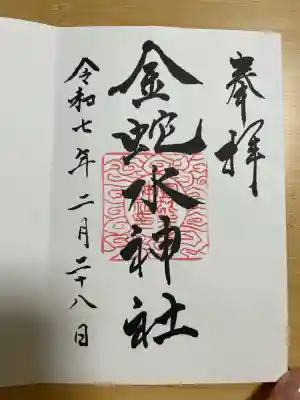 奉拝
金蛇水神社
令和七年二月二十八日